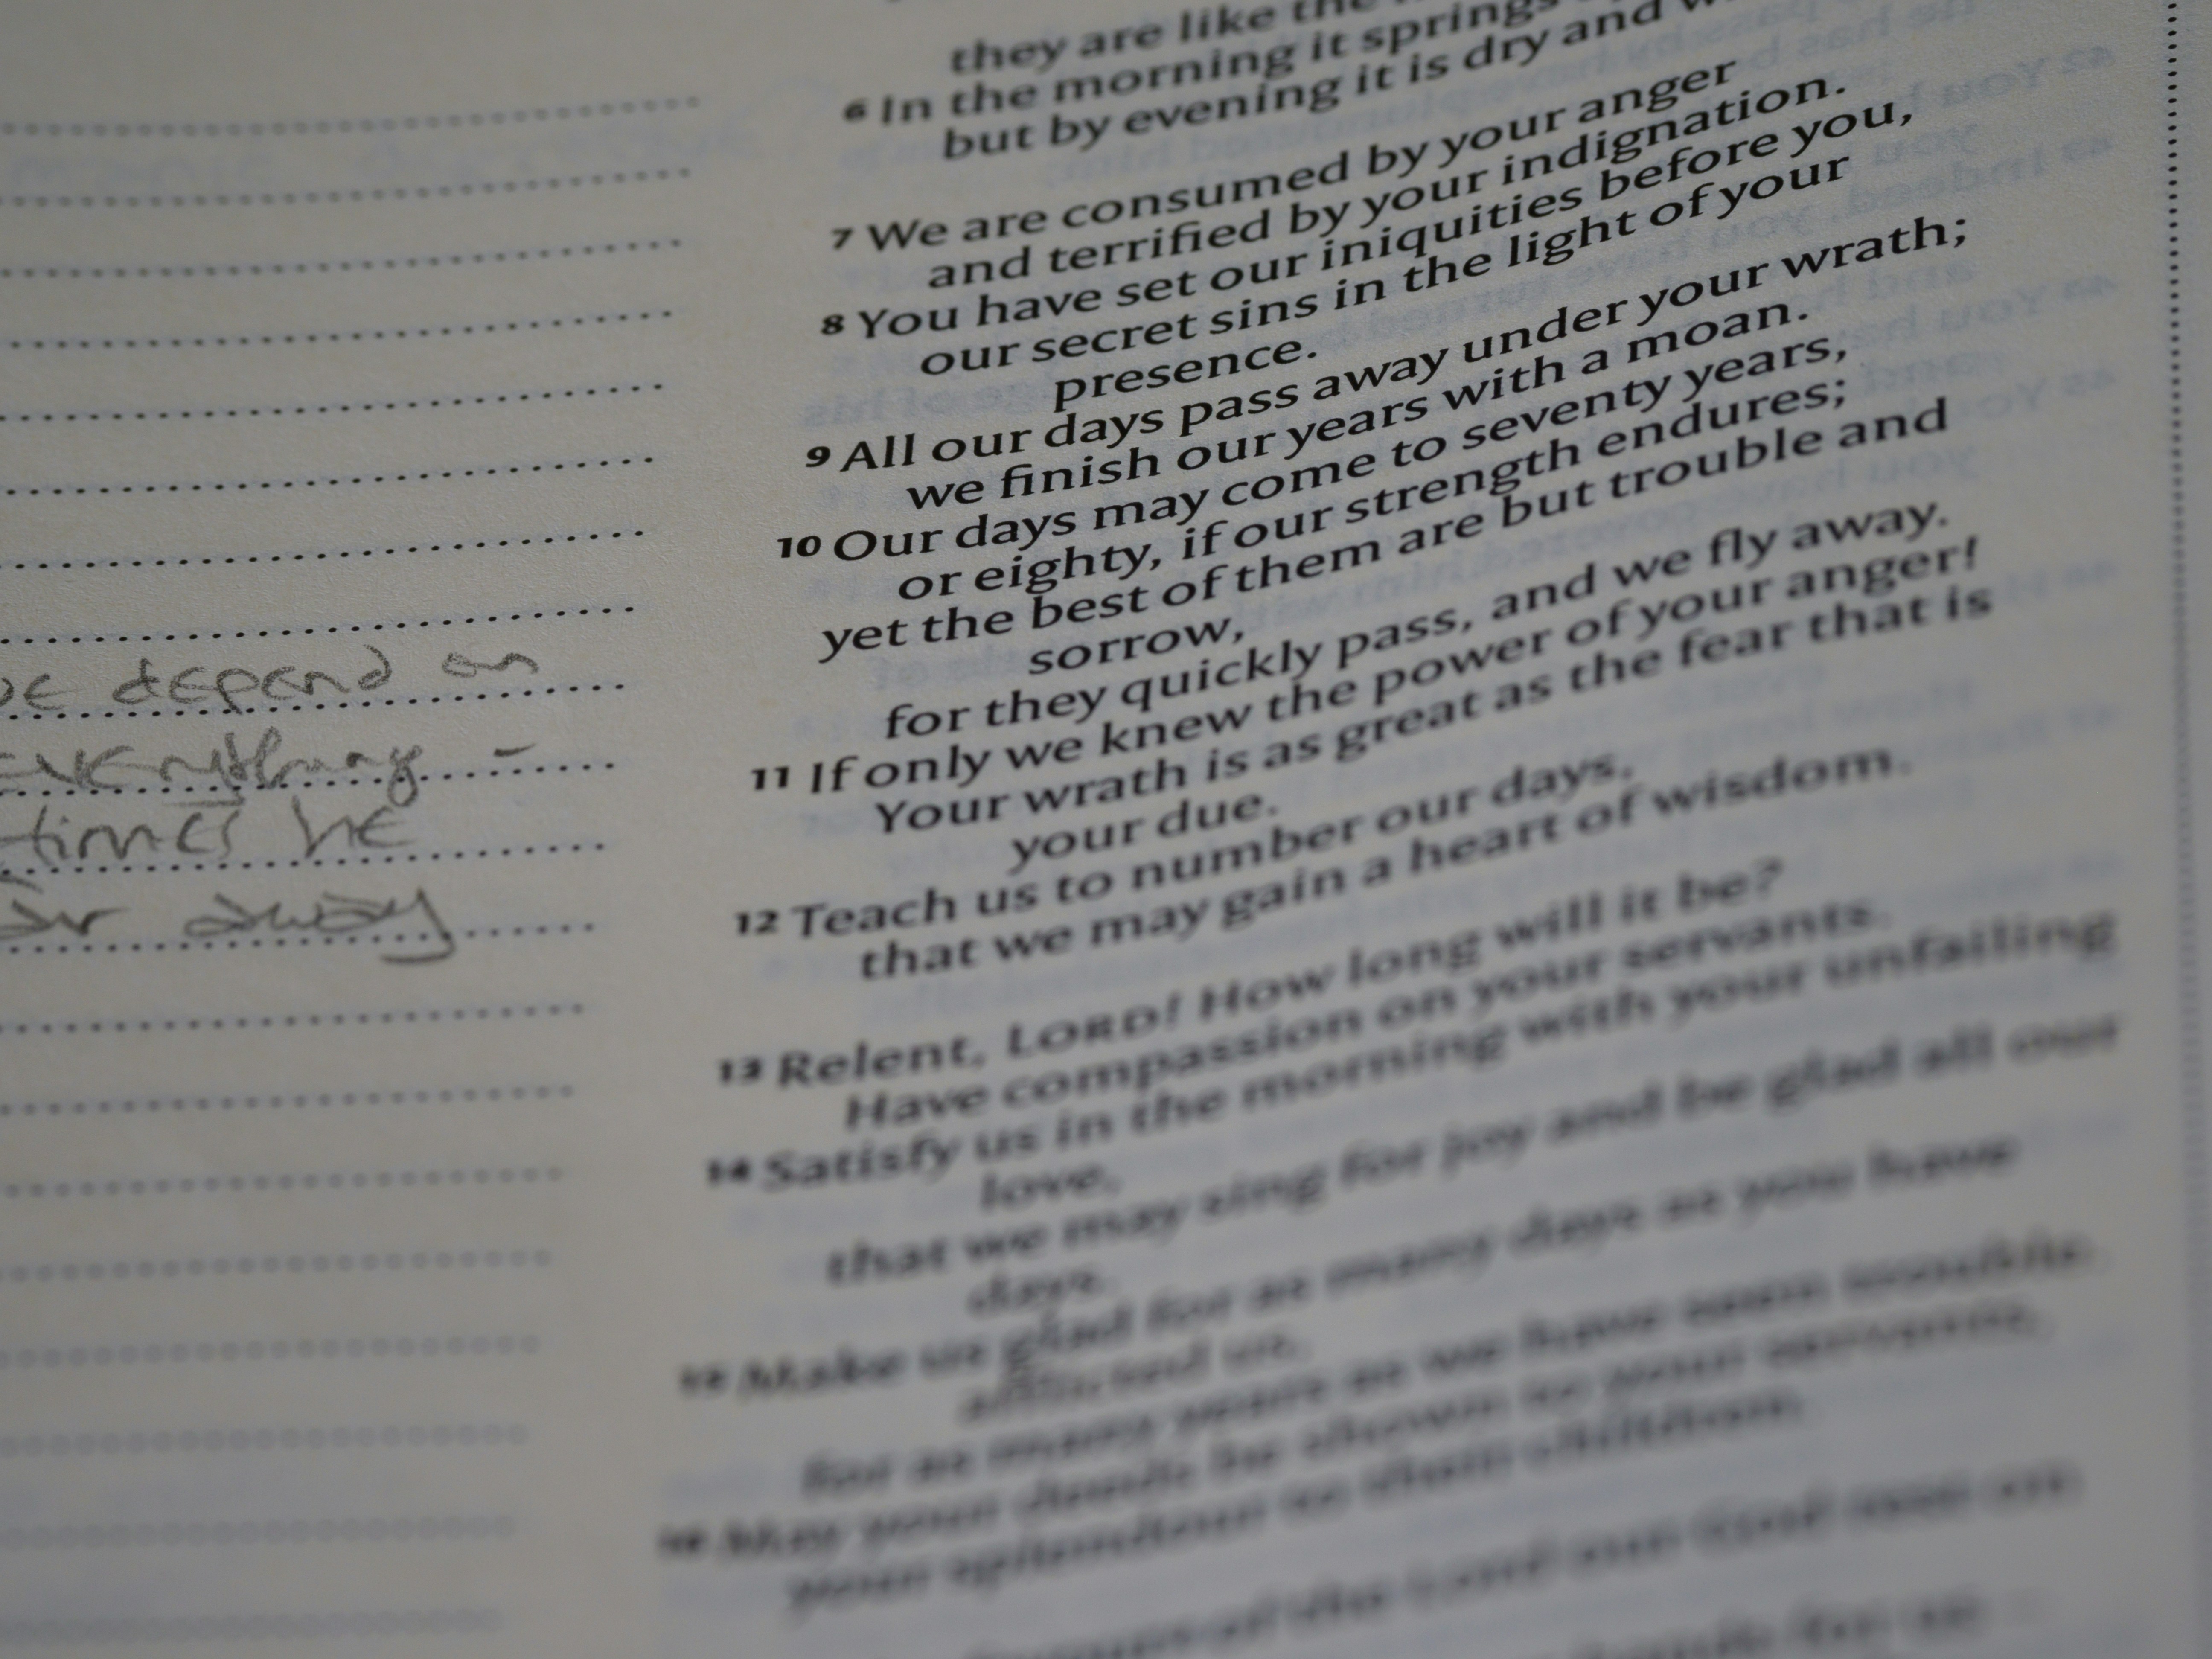 be depend on
everything -
times he
away
they are like the
6 In the morning it springs
but by evening it is dry and
7 We are consumed by your anger
and terrified by your indignation.
8 You have set our iniquities before you,
our secret sins in the light of your
presence.
9 All our days pass away under your wrath;
we finish our years with a moan.
10 Our days may come to seventy years,
or eighty, if our strength endures;
yet the best of them are but trouble and
sorrow,
for they quickly pass, and we fly away.
11 If only we knew the power of your anger!
Your wrath is as great as the fear that is
your due.
12 Teach us to number our days,
that we may gain a heart of wisdom.
13 Relent, LORD! How long will it be?
Have compassion on your servants.
14 Satisfy us in the morning with your unfailing
love,
that we may sing for joy and be glad all our
days.
15 Make us glad for as many days as you have
afflicted us,
for as many years as we have seen trouble.
16 May your deeds be shown to your servants,
your splendour to their children.
of the Lord our God rest on
for us